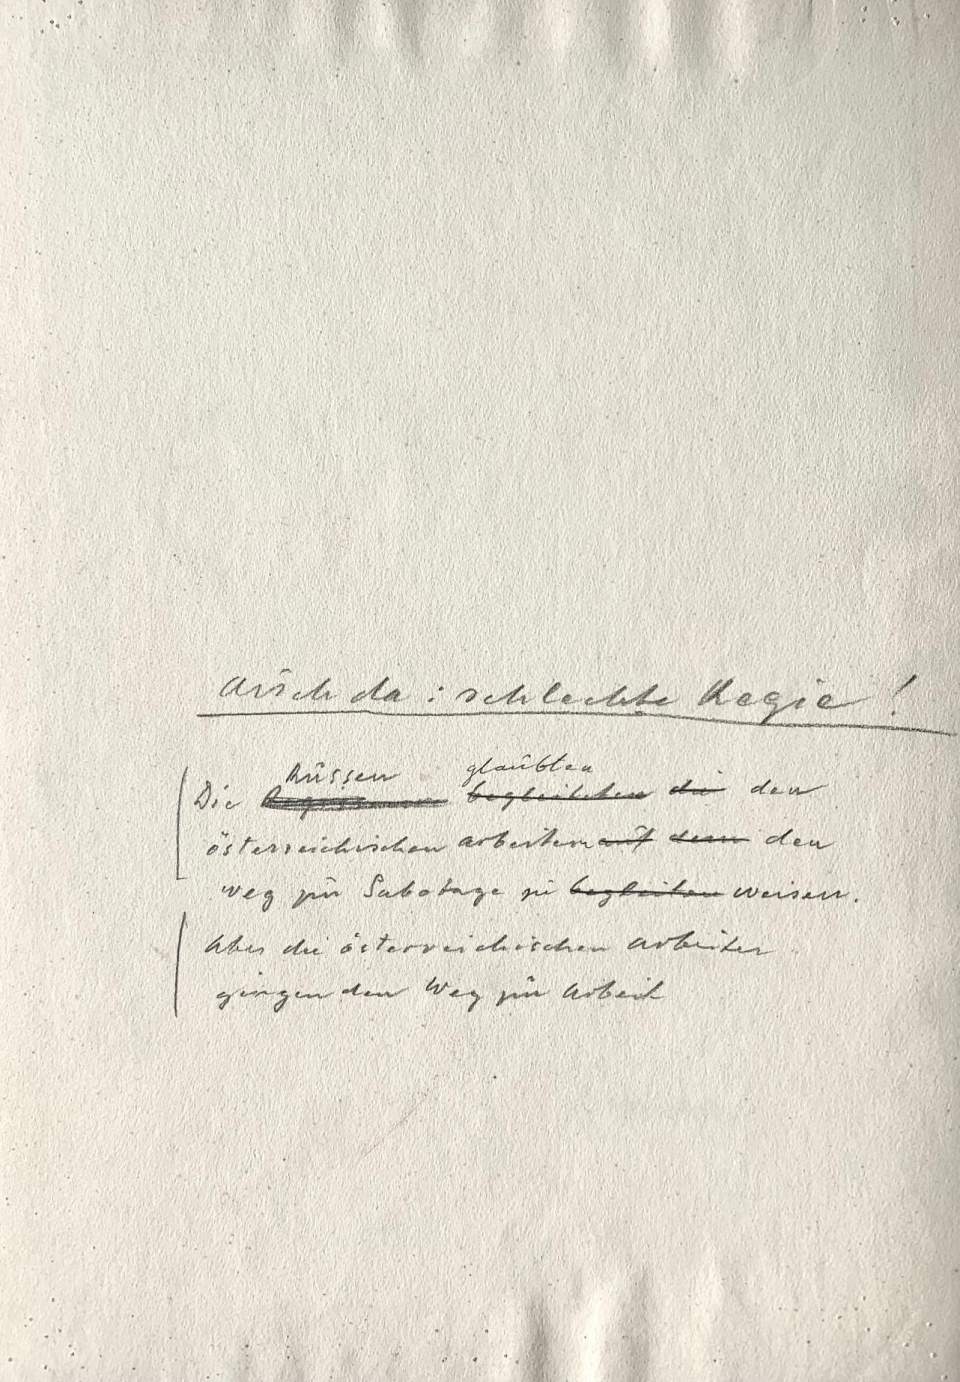 Auch da : schlechte Regie !
Russen glaubten
Die begleiteten die den
österreichischen Arbeitern auf dem den
Weg zur Sabotage zu begleiten weisen.
Aber die österreichischen Arbeiter
gingen den Weg zur Arbeit